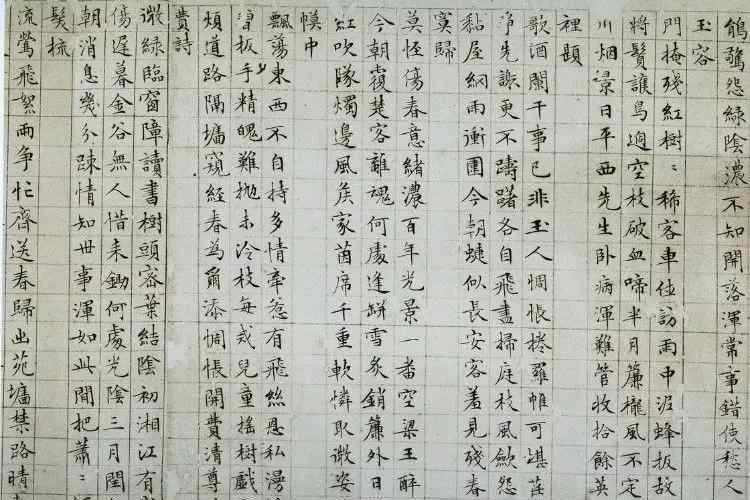 驚怨綠陰濃不知開落渾常事錯使愁人
玉容
門掩殘紅樹〻稀客車位訪雨中泥蜂扳故
將鬚護鳥過空枝破血啼半月簾櫳風不定
川烟景日平西先生卧病渾難管收拾餘英
裡題
歌酒闌干事已非玉人惆悵捲羅帷可堪
淨先謝更不躊躇各自飛盡掃庭枝風歛怨
黏屋網雨衝圍今朝蜨似長安客羞見殘春
寞歸
莫怪傷春意緒濃百年光景一番空梁王醉
今朝覆楚客離魂何處逢缾雪炙銷簾外日
紅吹隊燭邊風侯家茵席千重軟憐取微姿
幙中
飄蕩東西不自持多情牽惹有飛絲恩私漫
板手精魄難拋未冷枝每戒兒童搖樹戲
煩道路隔墻窺經春為爾添惆悵開費清尊
費詩
溦綠臨窗障讀書樹頭密葉結陰初湘江有
傷遲暮金谷無人惜耒鋤何處光陰三月閏
朝消息幾分踈情知世事渾如此閒把蕭〻
髮梳
流鶯飛絮兩爭忙齊送春歸出苑墻禁路晴